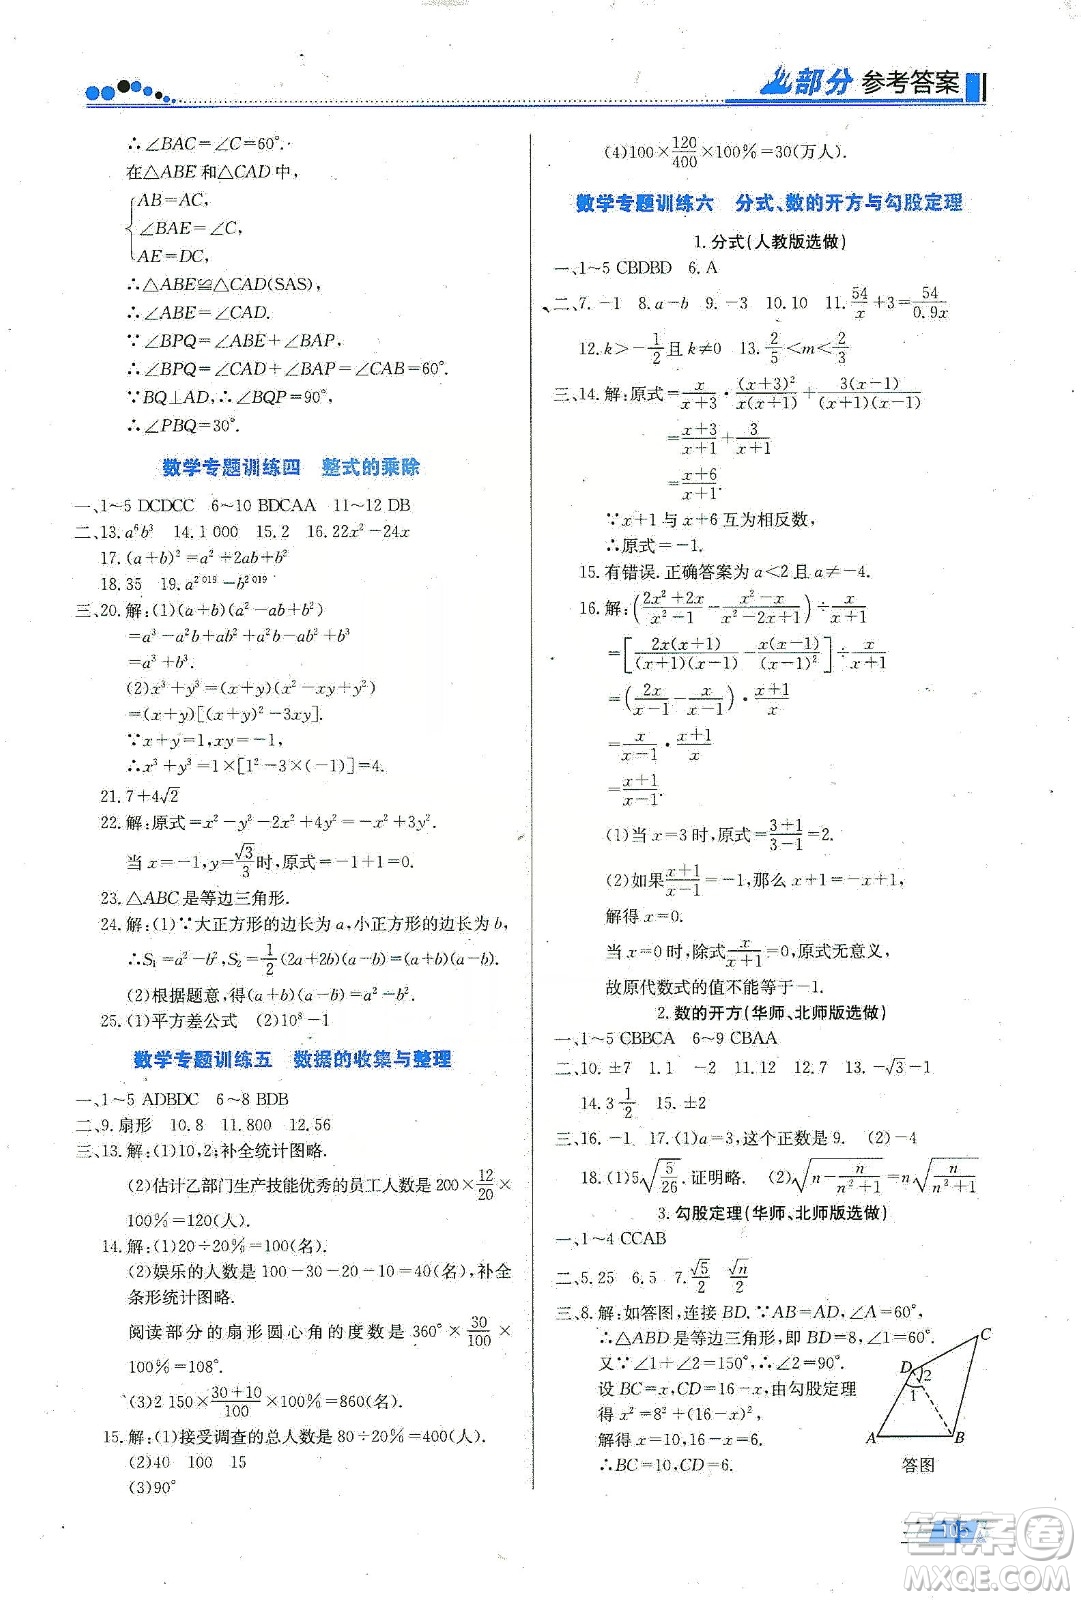 部分 参考答案
∴∠BAC=∠C=60°.
在△ABE和△CAD中,
AB=AC,
∠BAE=∠C,
AE=DC,
∴△ABE≌△CAD(SAS),
∴∠ABE=∠CAD.
∵∠BPQ=∠ABE+∠BAP,
∴∠BPQ=∠CAD+∠BAP=∠CAB=60°.
∵BQ⊥AD,∴∠BQP=90°,
∴∠PBQ=30°.
数学专题训练四 整式的乘除
一、1~5 DCDCC 6~10 BDCAA 11~12 DB
二、13.a⁶b³ 14.1 000 15.2 16.22x²-24x
17.(a+b)²=a²+2ab+b²
18.35 19.a²⁰¹⁹-b²⁰¹⁹
三、20.解:(1)(a+b)(a²-ab+b²)
=a³-a²b+ab²+a²b-ab²+b³
=a³+b³.
(2)x³+y³=(x+y)(x²-xy+y²)
=(x+y)[(x+y)²-3xy].
∵x+y=1,xy=-1,
∴x³+y³=1×[1²-3×(-1)]=4.
21.7+4√2
22.解:原式=x²-y²-2x²+4y²=-x²+3y².
当x=-1,y=√3/3时,原式=-1+1=0.
23.△ABC是等边三角形.
24.解:(1)∵大正方形的边长为a,小正方形的边长为b,
∴S₁=a²-b²,S₂=1/2(2a+2b)(a-b)=a²-b².
(2)根据题意,得(a+b)(a-b)=a²-b².
25.(1)平方差公式 (2)10⁸-1
数学专题训练五 数据的收集与整理
一、1~5 ADBDC 6~8 BDB
二、9.扇形 10.8 11.800 12.56
三、13.解:(1)10,2;补全统计图略.
(2)估计乙部门生产技能优秀的员工人数是200×12/20×
100%=120(人).
14.解:(1)20÷20%=100(名).
(2)娱乐的人数是100-30-20-10=40(名),补全
条形统计图略.
阅读部分的扇形圆心角的度数是360°×30/100×
100%=108°.
(3)2 150×(30+10)/100×100%=860(名).
15.解:(1)接受调查的总人数是80÷20%=400(人).
(2)40 100 15
(3)90°
(4)100×120/400×100%=30(万人).
数学专题训练六 分式、数的开方与勾股定理
1.分式(人教版选做)
一、1~5 CBDBD 6.A
二、7.-1 8.a-b 9.-3 10.10 11.54/x+3=54/0.9x
12.k>-1/2且k≠0 13.2/5<m<2/3
三、14.解:原式=x/(x+3)·(x+3)²/x(x+1)+3(x-1)/(x+1)(x-1)
=(x+3)/(x+1)+3/(x+1)
=(x+6)/(x+1).
∵x+1与x+6互为相反数,
∴原式=-1.
15.有错误.正确答案为a<2且a≠-4.
16.解:((2x²+2x)/(x²-1)-(x²-x)/(x²-2x+1))÷x/(x+1)
=[2x(x+1)/(x+1)(x-1)-x(x-1)/(x-1)²]÷x/(x+1)
=(2x/(x-1)-x/(x-1))·(x+1)/x
=x/(x-1)·(x+1)/x
=(x+1)/(x-1).
(1)当x=3时,原式=(3+1)/(3-1)=2.
(2)如果(x+1)/(x-1)=-1,那么x+1=-x+1,
解得x=0.
当x=0时,除式x/(x+1)=0,原式无意义,
故原代数式的值不能等于-1.
2.数的开方(华师、北师版选做)
一、1~5 CBBCA 6~9 CBAA
二、10.±7 11.1 -2 12.7 13.-√3-1
14.3 1/2 15.±2
三、16.-1 17.(1)a=3,这个正数是9. (2)-4
18.(1)5√(5/26).证明略. (2)√(n-n/(n²+1))=n√(n/(n²+1))
3.勾股定理(华师、北师版选做)
一、1~4 CCAB
二、5.25 6.5 7.√5/2 √n/2
三、8.解:如答图,连接BD.∵AB=AD,∠A=60°,
∴△ABD是等边三角形,即BD=8,∠1=60°.
又∵∠1+∠2=150°,∴∠2=90°.
设BC=x,CD=16-x,由勾股定理
得x²=8²+(16-x)²,
解得x=10,16-x=6.
∴BC=10,CD=6.
C
D
2
1
A
B
答图
105
答案卷
MXQE.COM